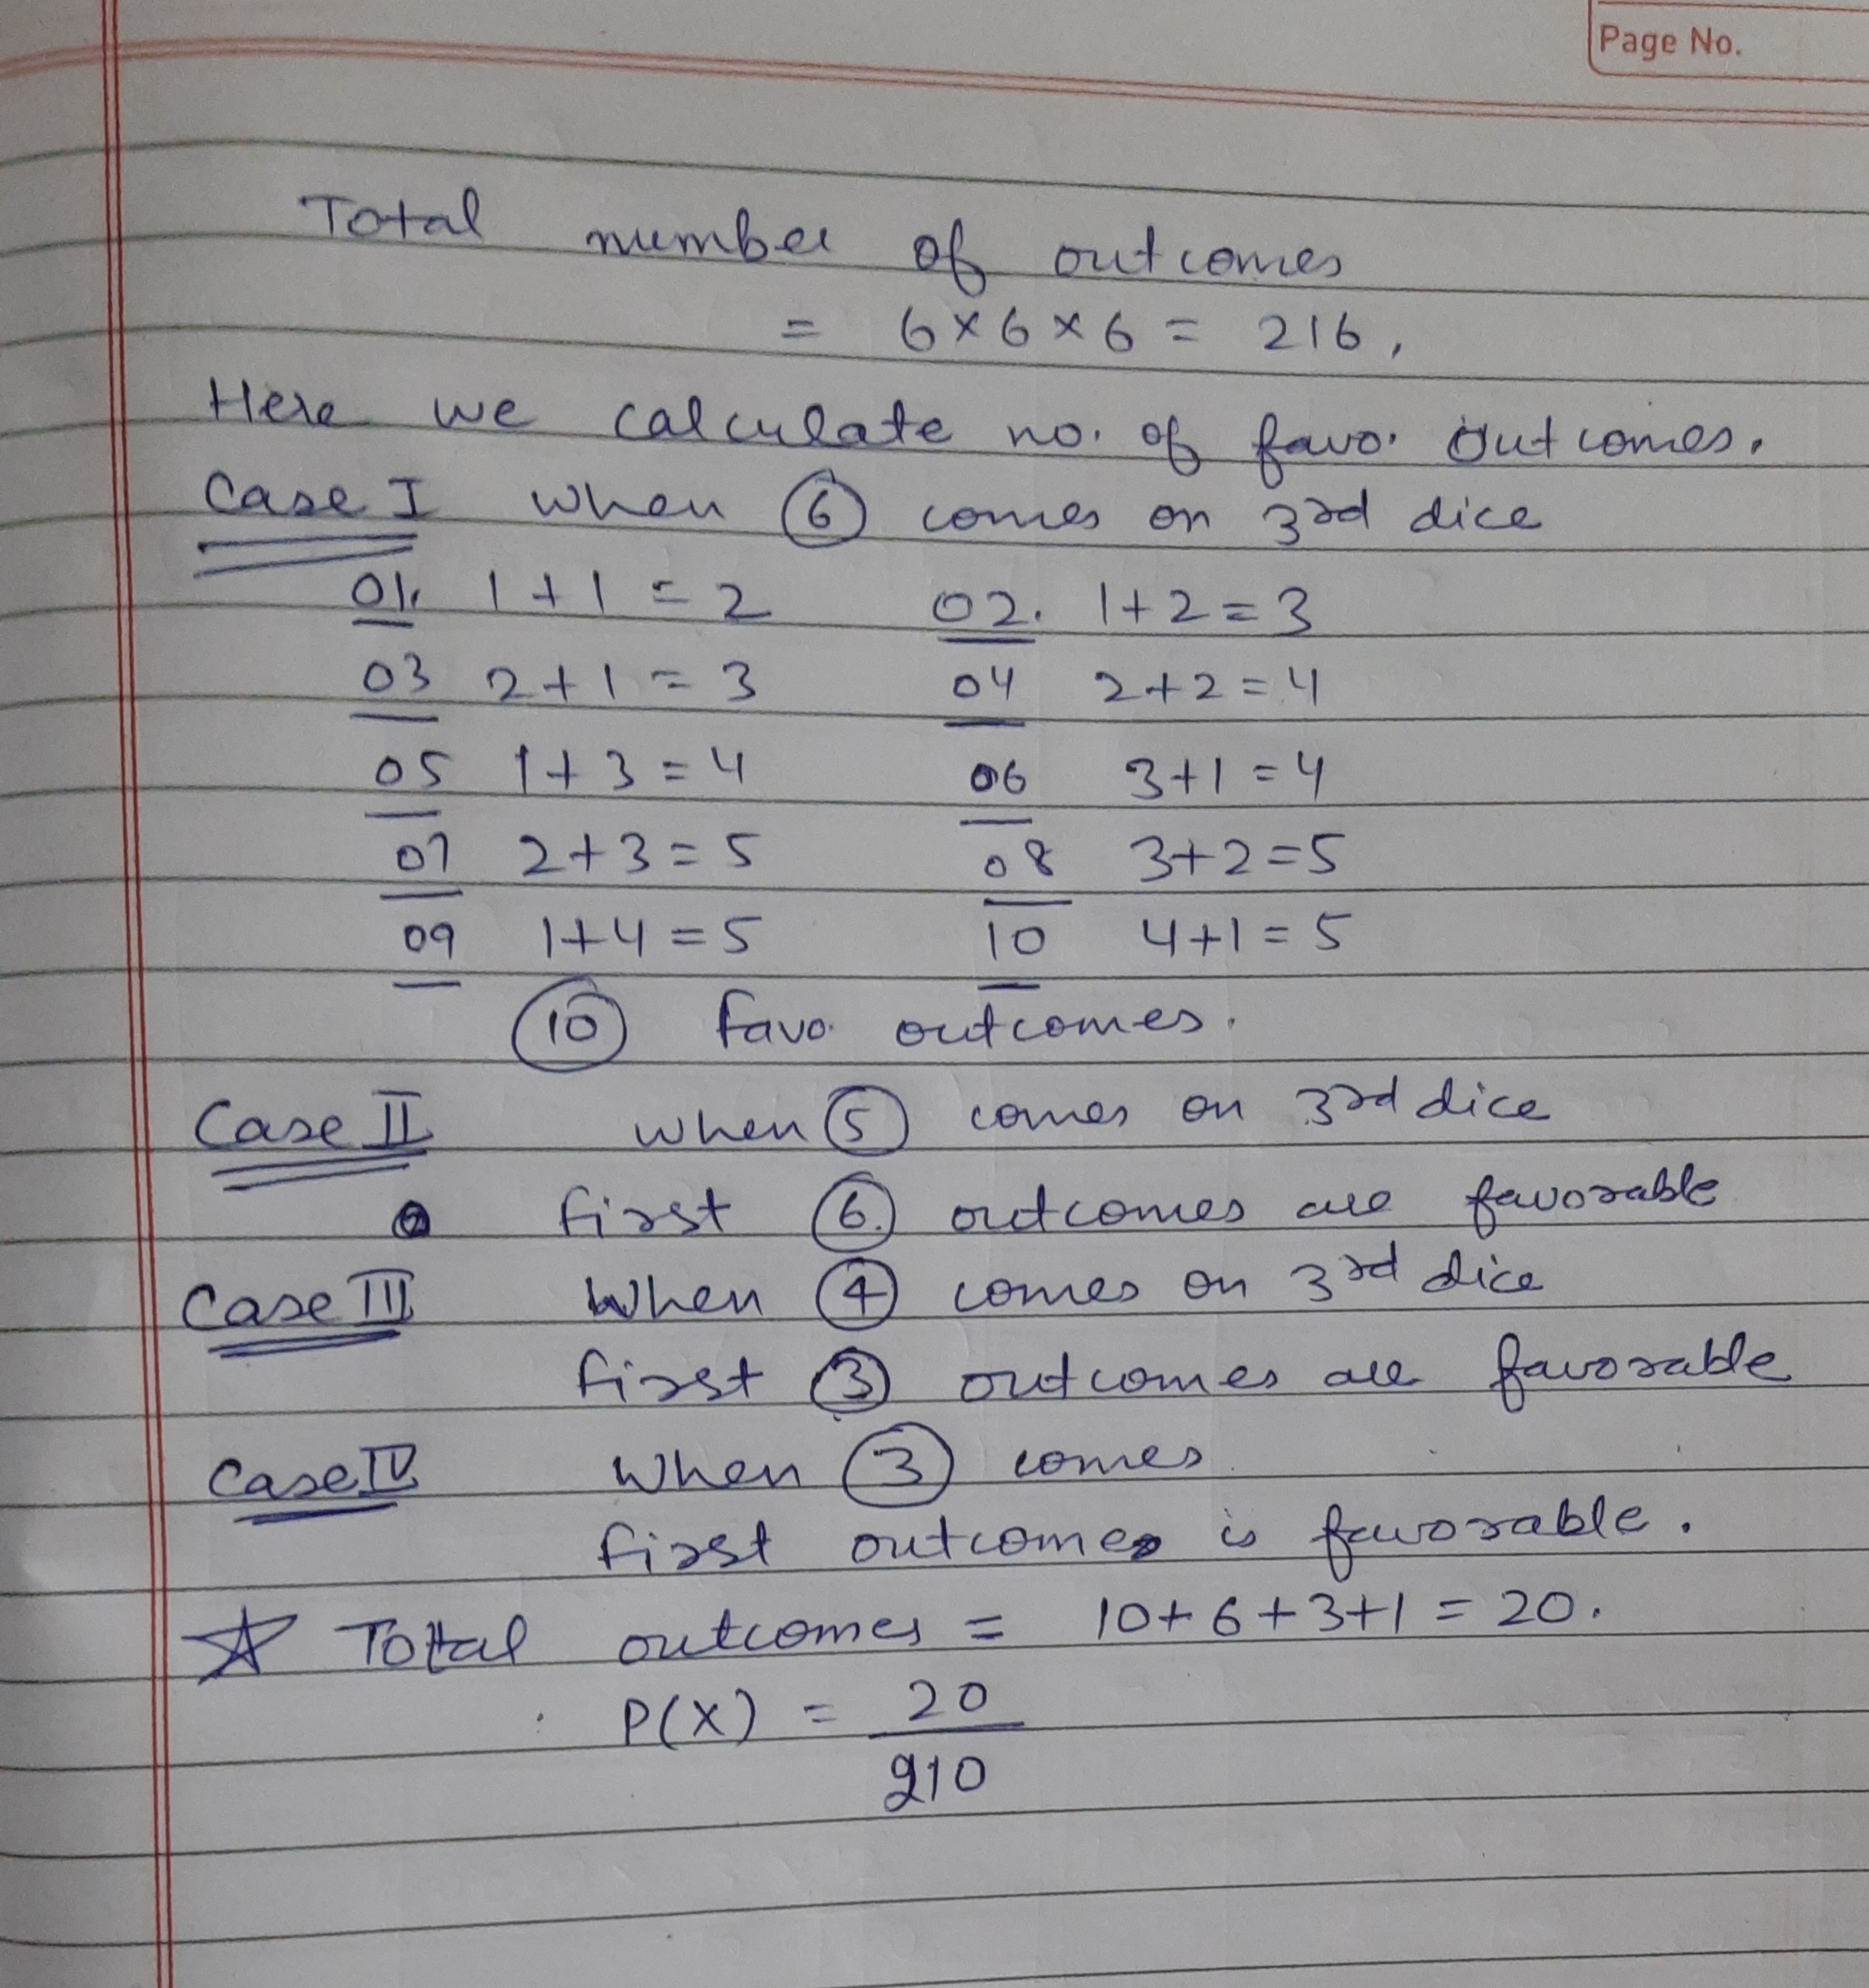 Page No.
Total number of outcomes
= 6 × 6 × 6 = 216,
Here we calculate no. of favo. outcomes.
Case I when 6 comes on 3rd dice
01. 1 + 1 = 2 02. 1 + 2 = 3
03 2 + 1 = 3 04 2 + 2 = 4
05 1 + 3 = 4 06 3 + 1 = 4
07 2 + 3 = 5 08 3 + 2 = 5
09 1 + 4 = 5 10 4 + 1 = 5
10 favo. outcomes.
Case II when 5 comes on 3rd dice
first 6. outcomes are favorable
Case III When 4 comes on 3rd dice
first 3 outcomes are favorable
Case IV When 3 comes
first outcomes is favorable.
☆ Total outcomes = 10 + 6 + 3 + 1 = 20.
P(X) = 20
210